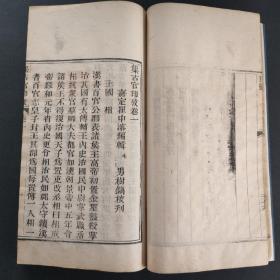 集古官印攷卷一
嘉定瞿中溶編輯 男樹鎬校刊
王國相
漢書百官公卿表諸侯王高帝初置金璽盭綬掌
治其國有太傅輔王內史治國民中尉掌武職丞
相統衆官羣卿大夫都官如漢朝景帝中五年令
諸侯王不得復治國天子爲置吏改丞相曰相成
帝綏和元年省內史更令相治民如郡太守續漢
書百官志皇子封王其郡爲國每置傅一人相一